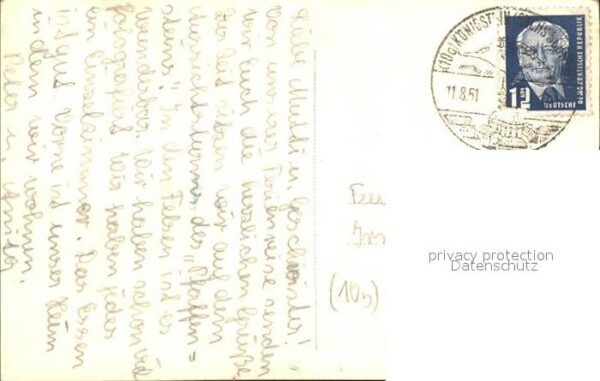 Liebe Mutti u. Geschwister!
Von unserer Ferienreise senden
wir Euch die herzlichen Grüße
Zur Zeit sitzen wir auf dem
der „Pfaffen=
steins". In den Felsen ist es
wunderbar. Wir haben schon viel
fotografiert. Wir haben jedes
ein Einzelzimmer. Das Essen
ist gut. Vorne ist unser Heim
in dem wir wohnen.
Peter u. Anita
(10g) KÖNIGSTEIN
11.8.51
1
DEUTSCHE
DEMOKRATISCHE REPUBLIK
(10b)
privacy protection
Datenschutz